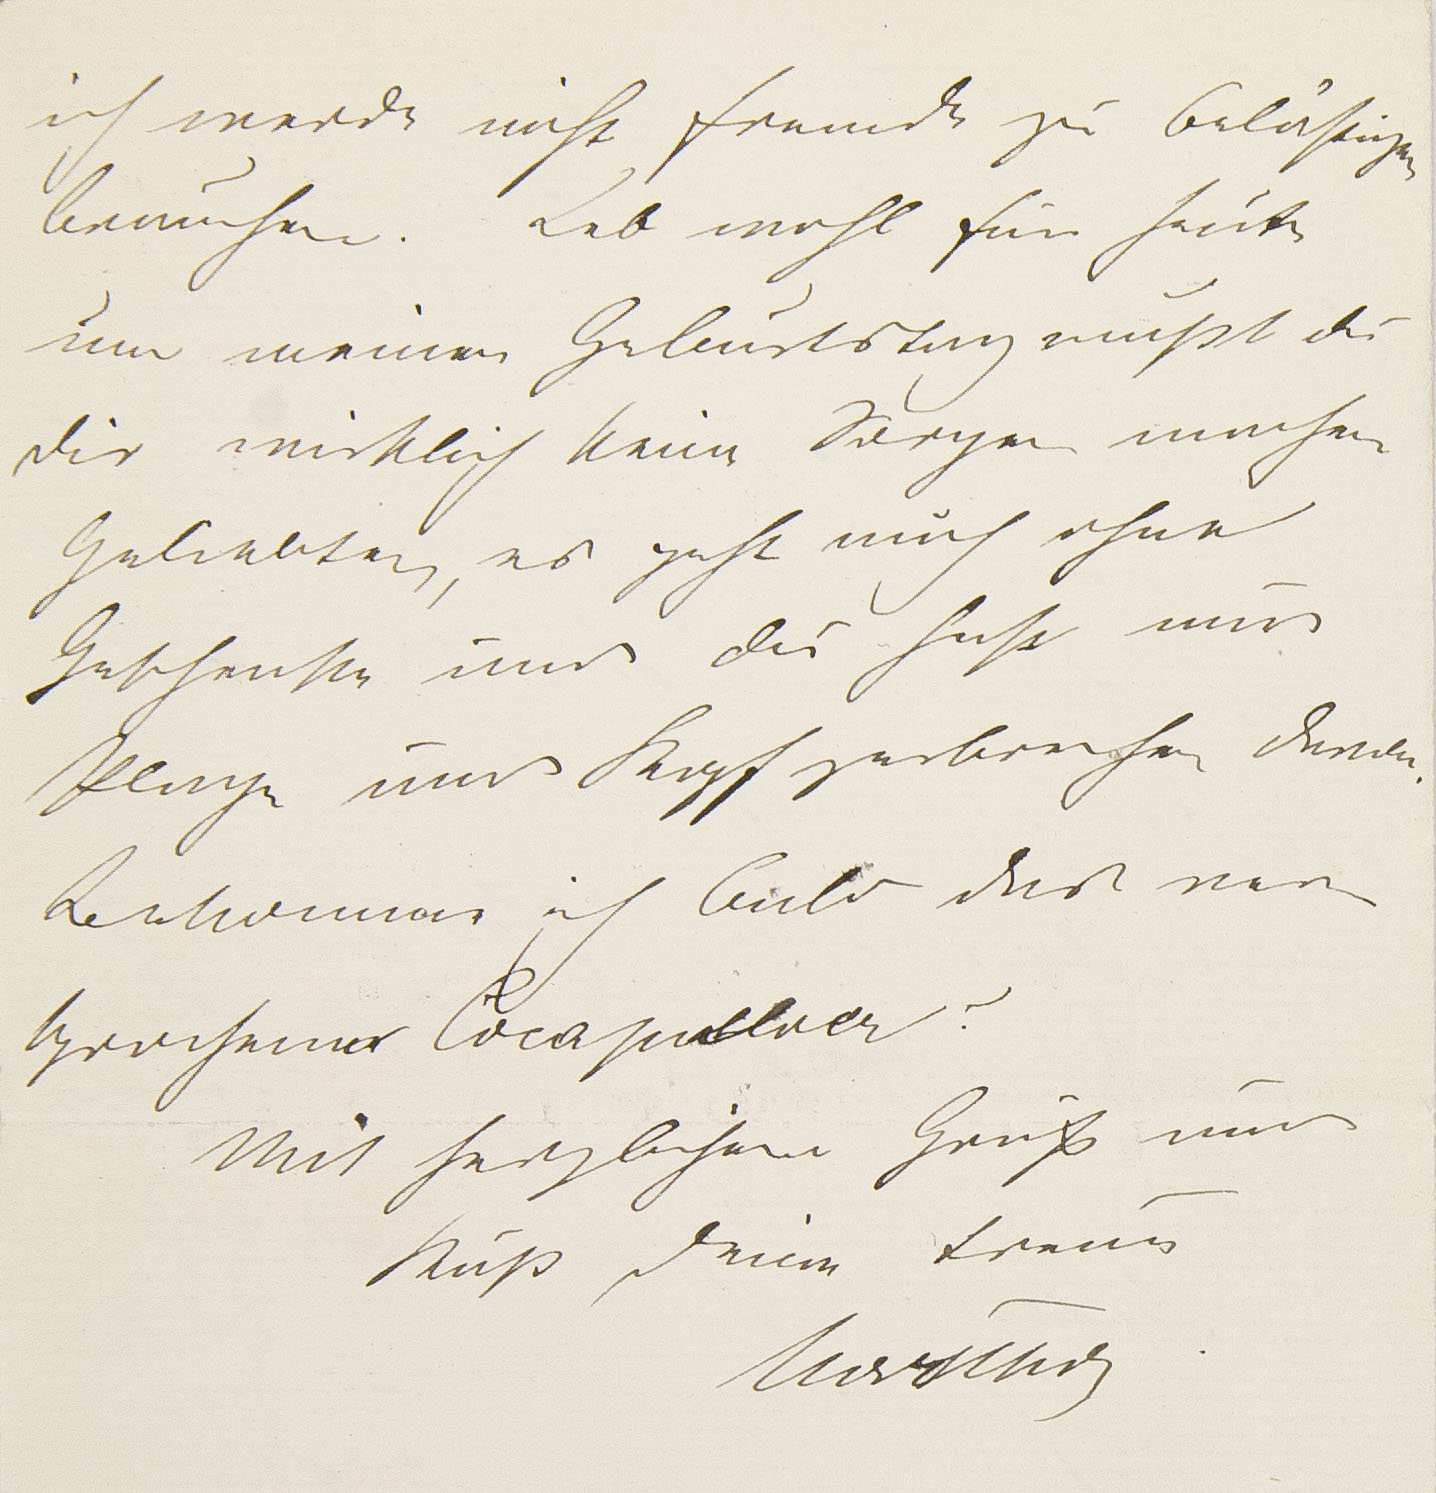 ich werde nicht fremde zu belästigen
brauchen. Leb wohl für heute
um meinen Geburtstag mußt du
dir wirklich keine Sorgen machen
Geliebter, es geht auch ohne
Geschenke und du hast nur
Plage und Kopfzerbrechen davon.
Bekomme ich bald das ver
sprochene Cocapulver?
Mit herzlichem Gruß und
Kuß deine treue
Martha